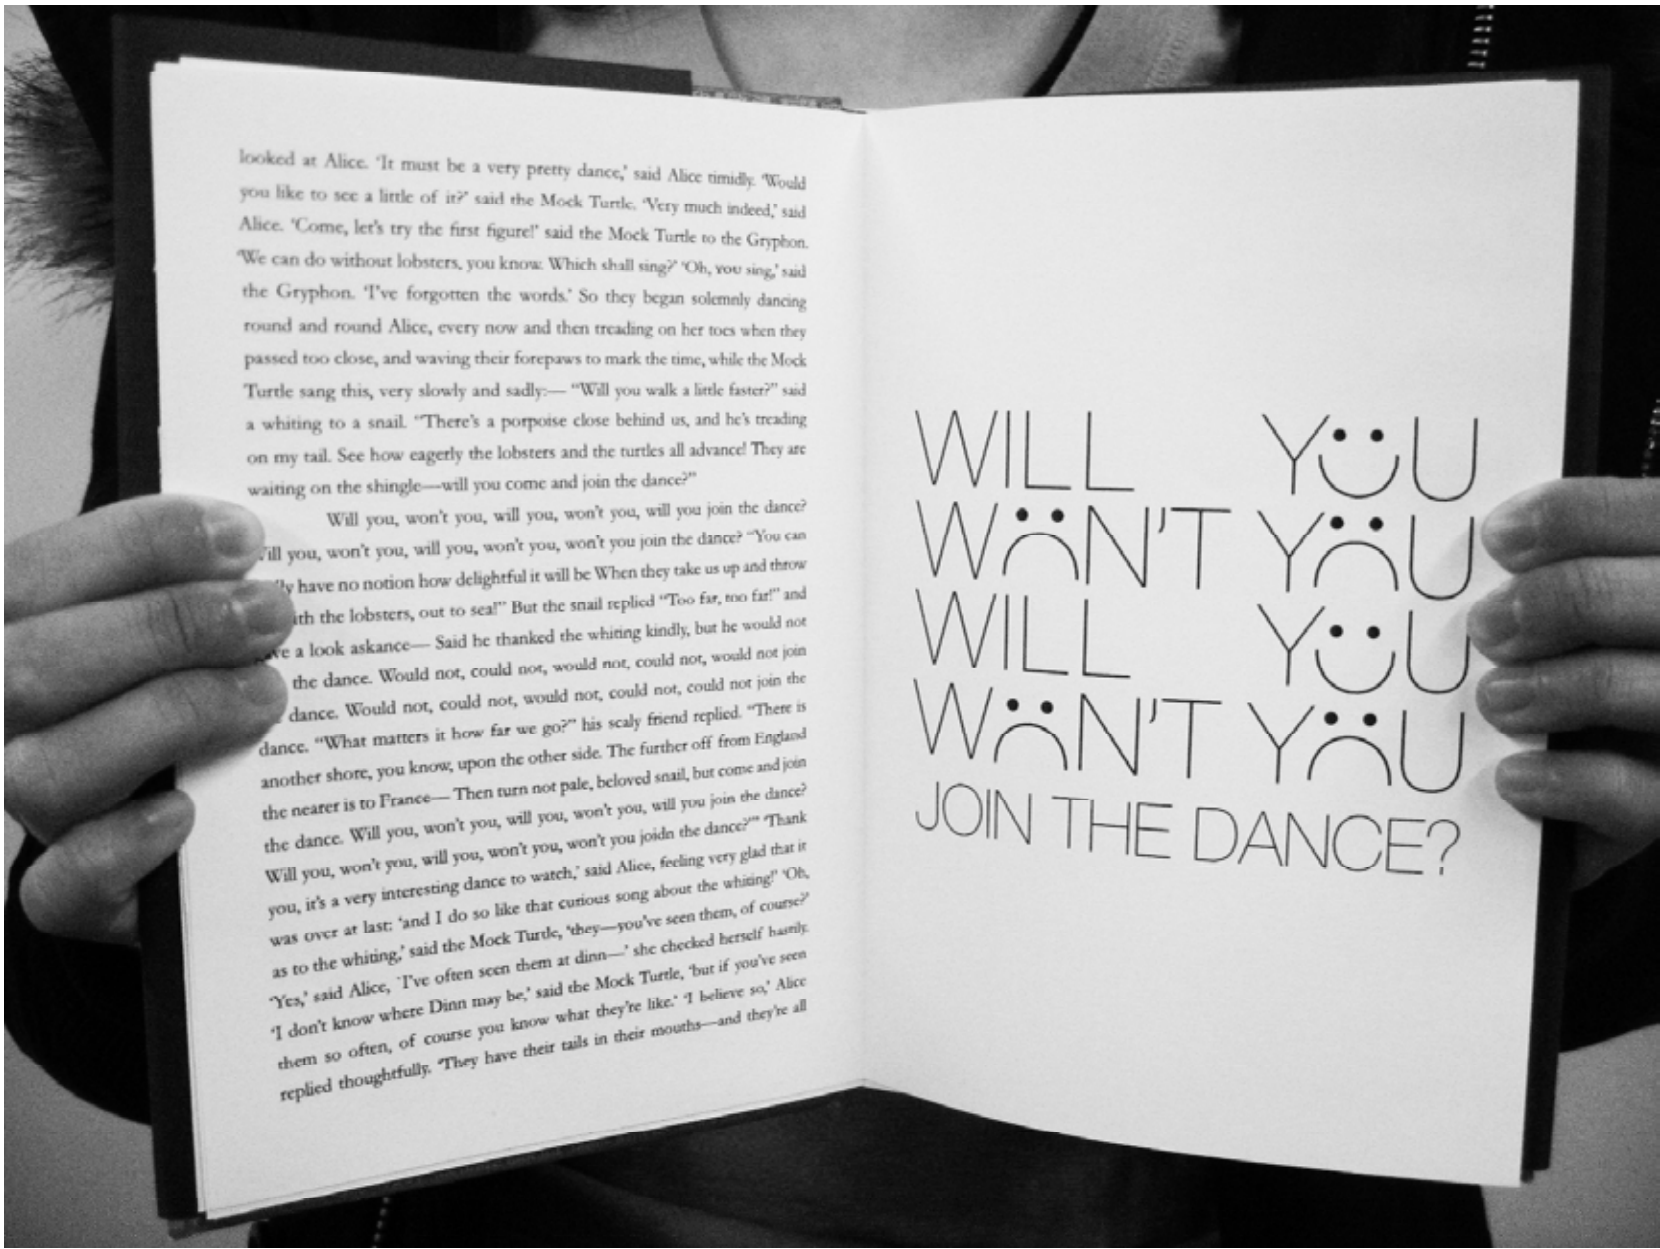 looked at Alice. 'It must be a very pretty dance,' said Alice timidly. 'Would
you like to see a little of it?' said the Mock Turtle. 'Very much indeed,' said
Alice. 'Come, let's try the first figure!' said the Mock Turtle to the Gryphon.
'We can do without lobsters, you know. Which shall sing?' 'Oh, you sing,' said
the Gryphon. 'I've forgotten the words.' So they began solemnly dancing
round and round Alice, every now and then treading on her toes when they
passed too close, and waving their forepaws to mark the time, while the Mock
Turtle sang this, very slowly and sadly:— "Will you walk a little faster?" said
a whiting to a snail. "There's a porpoise close behind us, and he's treading
on my tail. See how eagerly the lobsters and the turtles all advance! They are
waiting on the shingle—will you come and join the dance?"
Will you, won't you, will you, won't you, will you join the dance?
ill you, won't you, will you, won't you, won't you join the dance? "You can
ly have no notion how delightful it will be When they take us up and throw
ith the lobsters, out to sea!" But the snail replied "Too far, too far!" and
ve a look askance— Said he thanked the whiting kindly, but he would not
the dance. Would not, could not, would not, could not, would not join
dance. Would not, could not, would not, could not, could not join the
dance. "What matters it how far we go?" his scaly friend replied. "There is
another shore, you know, upon the other side. The further off from England
the nearer is to France— Then turn not pale, beloved snail, but come and join
the dance. Will you, won't you, will you, won't you, will you join the dance?
Will you, won't you, will you, won't you, won't you joidn the dance?"' 'Thank
you, it's a very interesting dance to watch,' said Alice, feeling very glad that it
was over at last: 'and I do so like that curious song about the whiting!' 'Oh,
as to the whiting,' said the Mock Turtle, 'they—you've seen them, of course?'
'Yes,' said Alice, `I've often seen them at dinn—' she checked herself hastily.
'I don't know where Dinn may be,' said the Mock Turtle, 'but if you've seen
them so often, of course you know what they're like.' 'I believe so,' Alice
replied thoughtfully. 'They have their tails in their mouths—and they're all
WILL YOU
WON'T YOU
WILL YOU
WON'T YOU
JOIN THE DANCE?